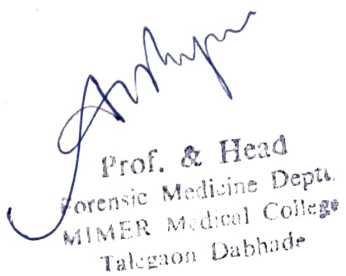 Prof. & Head
Forensic Medicine Deptt.
MIMER Medical College
Talegaon Dabhade